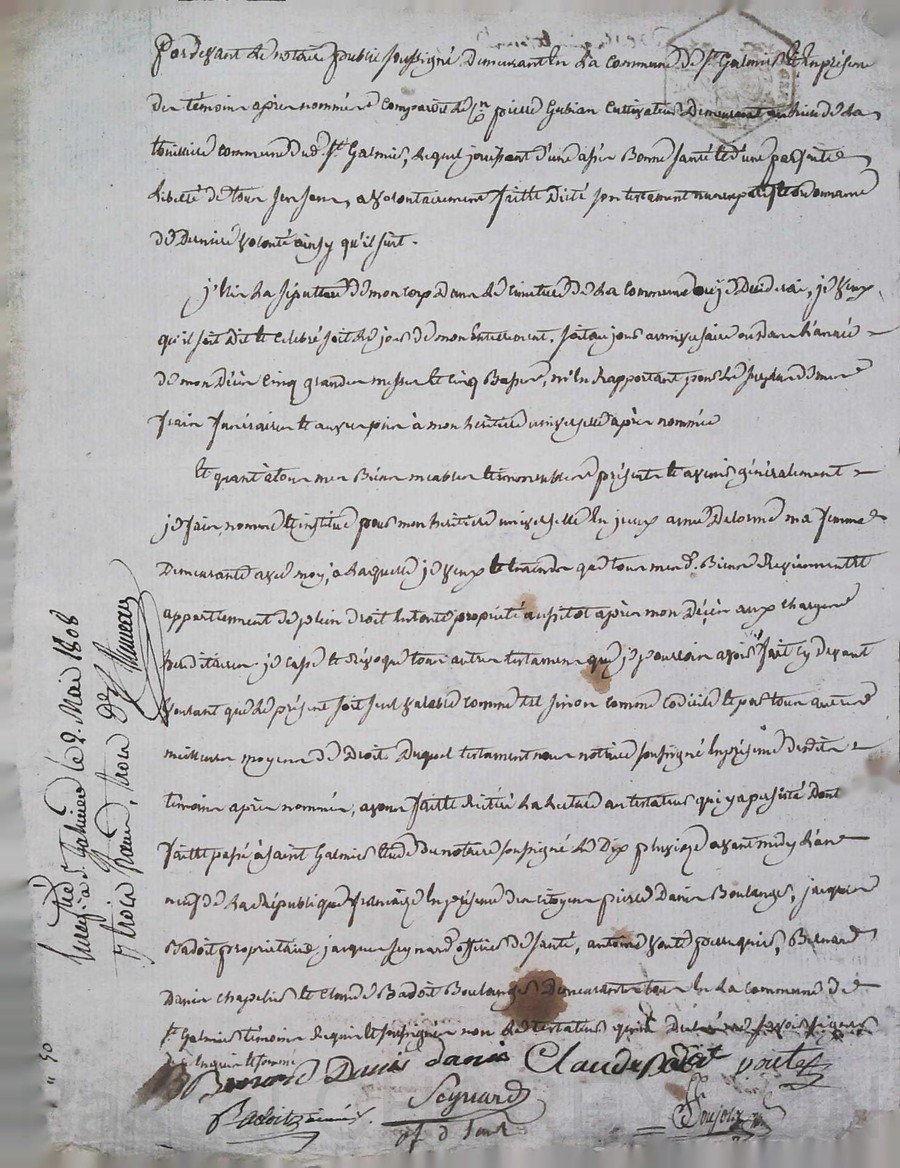 Pardevant le notaire public soussigné Demeurant En La commune de St Galmier Et En présence
des témoins après nommés Comparoit le Cen pierre Gubian Cultivateur Demeurant au lieu de La
thuilliere commune dud. St Galmier, Lequel jouissant d'une assés Bonne santé Et d'une parfaite
Liberté de tous ses sens, a volontairement fait Et Dicté son testament nuncupatif Et ordonnance
de Derniere volonté ainsy qu'il suit.
j'Elis La sépulture de mon corps Dans Le cimetiere de La Commune ou je Décederai, je veux
qu'il soit Dit Et Celebré soit Le jour de mon Enterrement, soit au jour anniversaire ou dans L'année
de mon Décès Cinq grandes messes Et Cinq Basses, m'En Rapportant pour Le surplus de mes
frais funéraires Et œuvres pies à mon héritiere universelle après nommée
Et quant à tous mes Biens meubles Et immeubles présents Et avenir généralement
je fais, nomme Et institue pour mon héritiere universelle Delorme ma femme
Demeurante avec moy, a Laquelle je veux Et Entends que tous mesd. Biens Reviennent Et
appartiennent de plein droit En toute proprieté aussitot après mon Décès aux charges
héréditaires. je casse Et Révoque tous autres testaments que je pourrois avoir fait cy devant
voulant que Le présent soit seul valable comme tel sinon comme codicile Et par tous autres
meilleurs moyens de Droit. Duquel testament nous notaire soussigné En présence desdits
témoins après nommés, avons fait Et Réitéré La Lecture au testateur qui y a persisté Dont
fait Et passé à saint Galmier Etude du notaire soussigné Le Dix pluviose avant midy L'an
neuf de La République française En présence des citoyens pierre Danis Boulanger, jacques
Badoit propriétaire, jacques Seynard officier de santé, antoine voute perruquier, Bernard
Danis chapelier Et Claude Badoit Boulanger Demeurants tous En La Commune de
St Galmier témoins Requis Et soussignés non Le testateur qui a Déclaré ne savoir signer
de Enquis Et sommé
Bernard Danis danis Claude Badoit voute
Badoit Seynard
of d santé
Enregistré à St Galmier le 2. Mai 1808
trois francs, trois